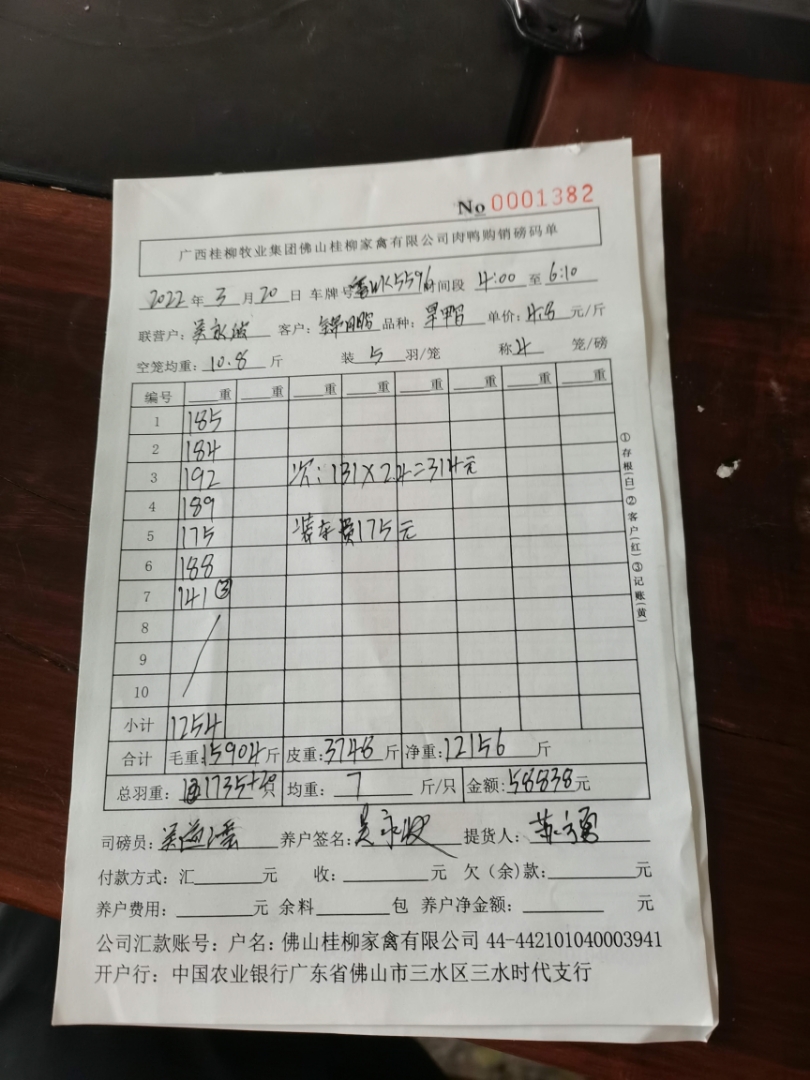 No 0001382
广西桂柳牧业集团佛山桂柳家禽有限公司肉鸭购销磅码单
2022年3月20日 车牌号 K5596 时间段 4:00 至 6:10
联营户: 吴永波 客户: 品种: 单价: 元/斤
空笼均重: 10.8 斤 装 5 羽/笼 称 4 笼/磅
编号 重 重 重 重 重 重 重 重
1 185
2 184
3 192 次:131×2.4=314元
4 189
5 175 装车费175元
6 188
7 141 ③
8
9
10
小计 1254
合计 毛重:15904斤 皮重:3748斤 净重:12156斤
总羽重: 1735+ 只 均重: 7 斤/只 金额:58838元
司磅员: 养户签名: 吴永波 提货人:
付款方式: 汇 元 收: 元 欠(余)款: 元
养户费用: 元 余料 包 养户净金额: 元
公司汇款账号: 户名: 佛山桂柳家禽有限公司 44-442101040003941
开户行: 中国农业银行广东省佛山市三水区三水时代支行
①存根(白)②客户(红)③记账(黄)